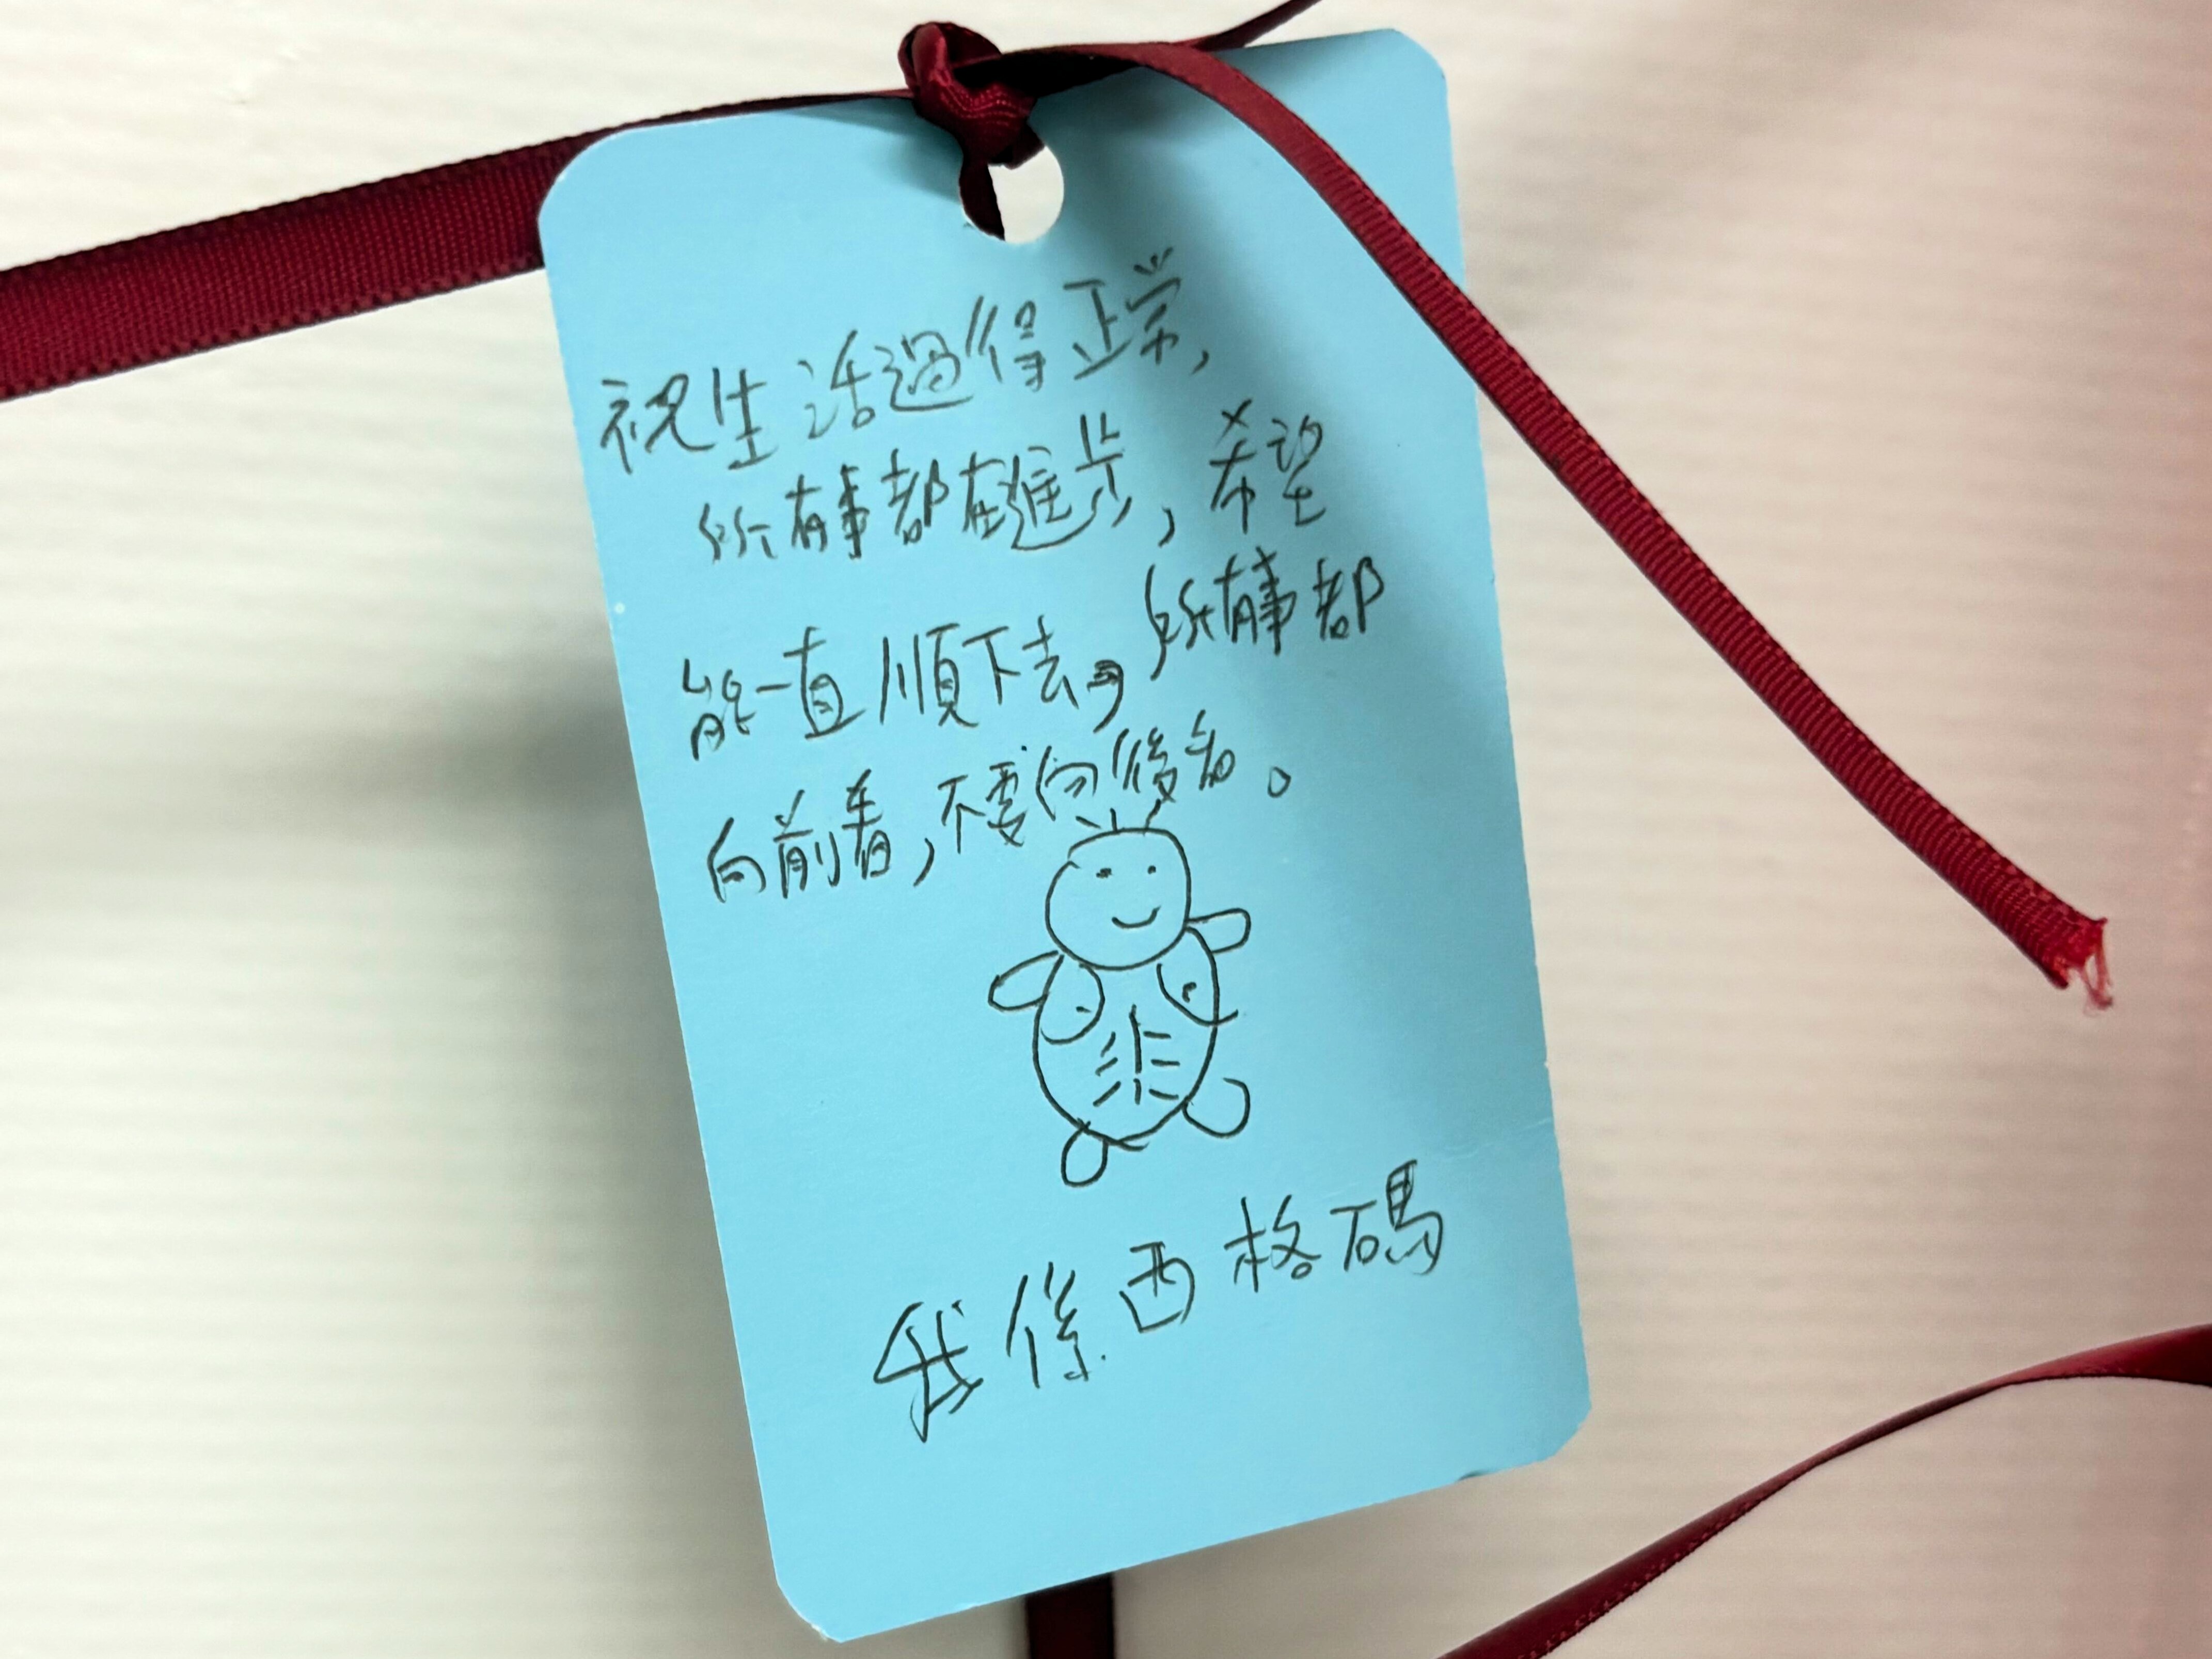 祝生活過得正常,
所有事都在進步,希望
能一直順下去,所有事都
向前看,不要向後看。
我係西格碼